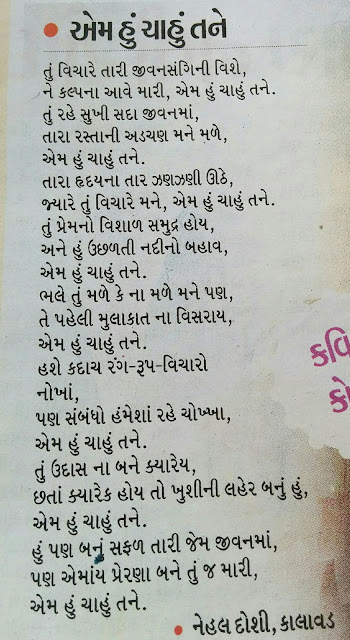 • એમ હું ચાહું તને
તું વિચારે તારી જીવનસંગિની વિશે,
ને કલ્પના આવે મારી, એમ હું ચાહું તને.
તું રહે સુખી સદા જીવનમાં,
તારા રસ્તાની અડચણ મને મળે,
એમ હું ચાહું તને.
તારા હૃદયના તાર ઝણઝણી ઊઠે,
જ્યારે તું વિચારે મને, એમ હું ચાહું તને.
તું પ્રેમનો વિશાળ સમુદ્ર હોય,
અને હું ઉછળતી નદીનો બહાવ,
એમ હું ચાહું તને.
ભલે તું મળે કે ના મળે મને પણ,
તે પહેલી મુલાકાત ના વિસરાય,
એમ હું ચાહું તને.
હશે કદાચ રંગ-રૂપ-વિચારો
નોખાં,
પણ સંબંધો હંમેશાં રહે ચોખ્ખા,
એમ હું ચાહું તને.
તું ઉદાસ ના બને ક્યારેય,
છતાં ક્યારેક હોય તો ખુશીની લહેર બનું હું,
એમ હું ચાહું તને.
હું પણ બનું સફળ તારી જેમ જીવનમાં,
પણ એમાંય પ્રેરણા બને તું જ મારી,
એમ હું ચાહું તને.
• નેહલ દોશી, કાલાવડ
કવિ